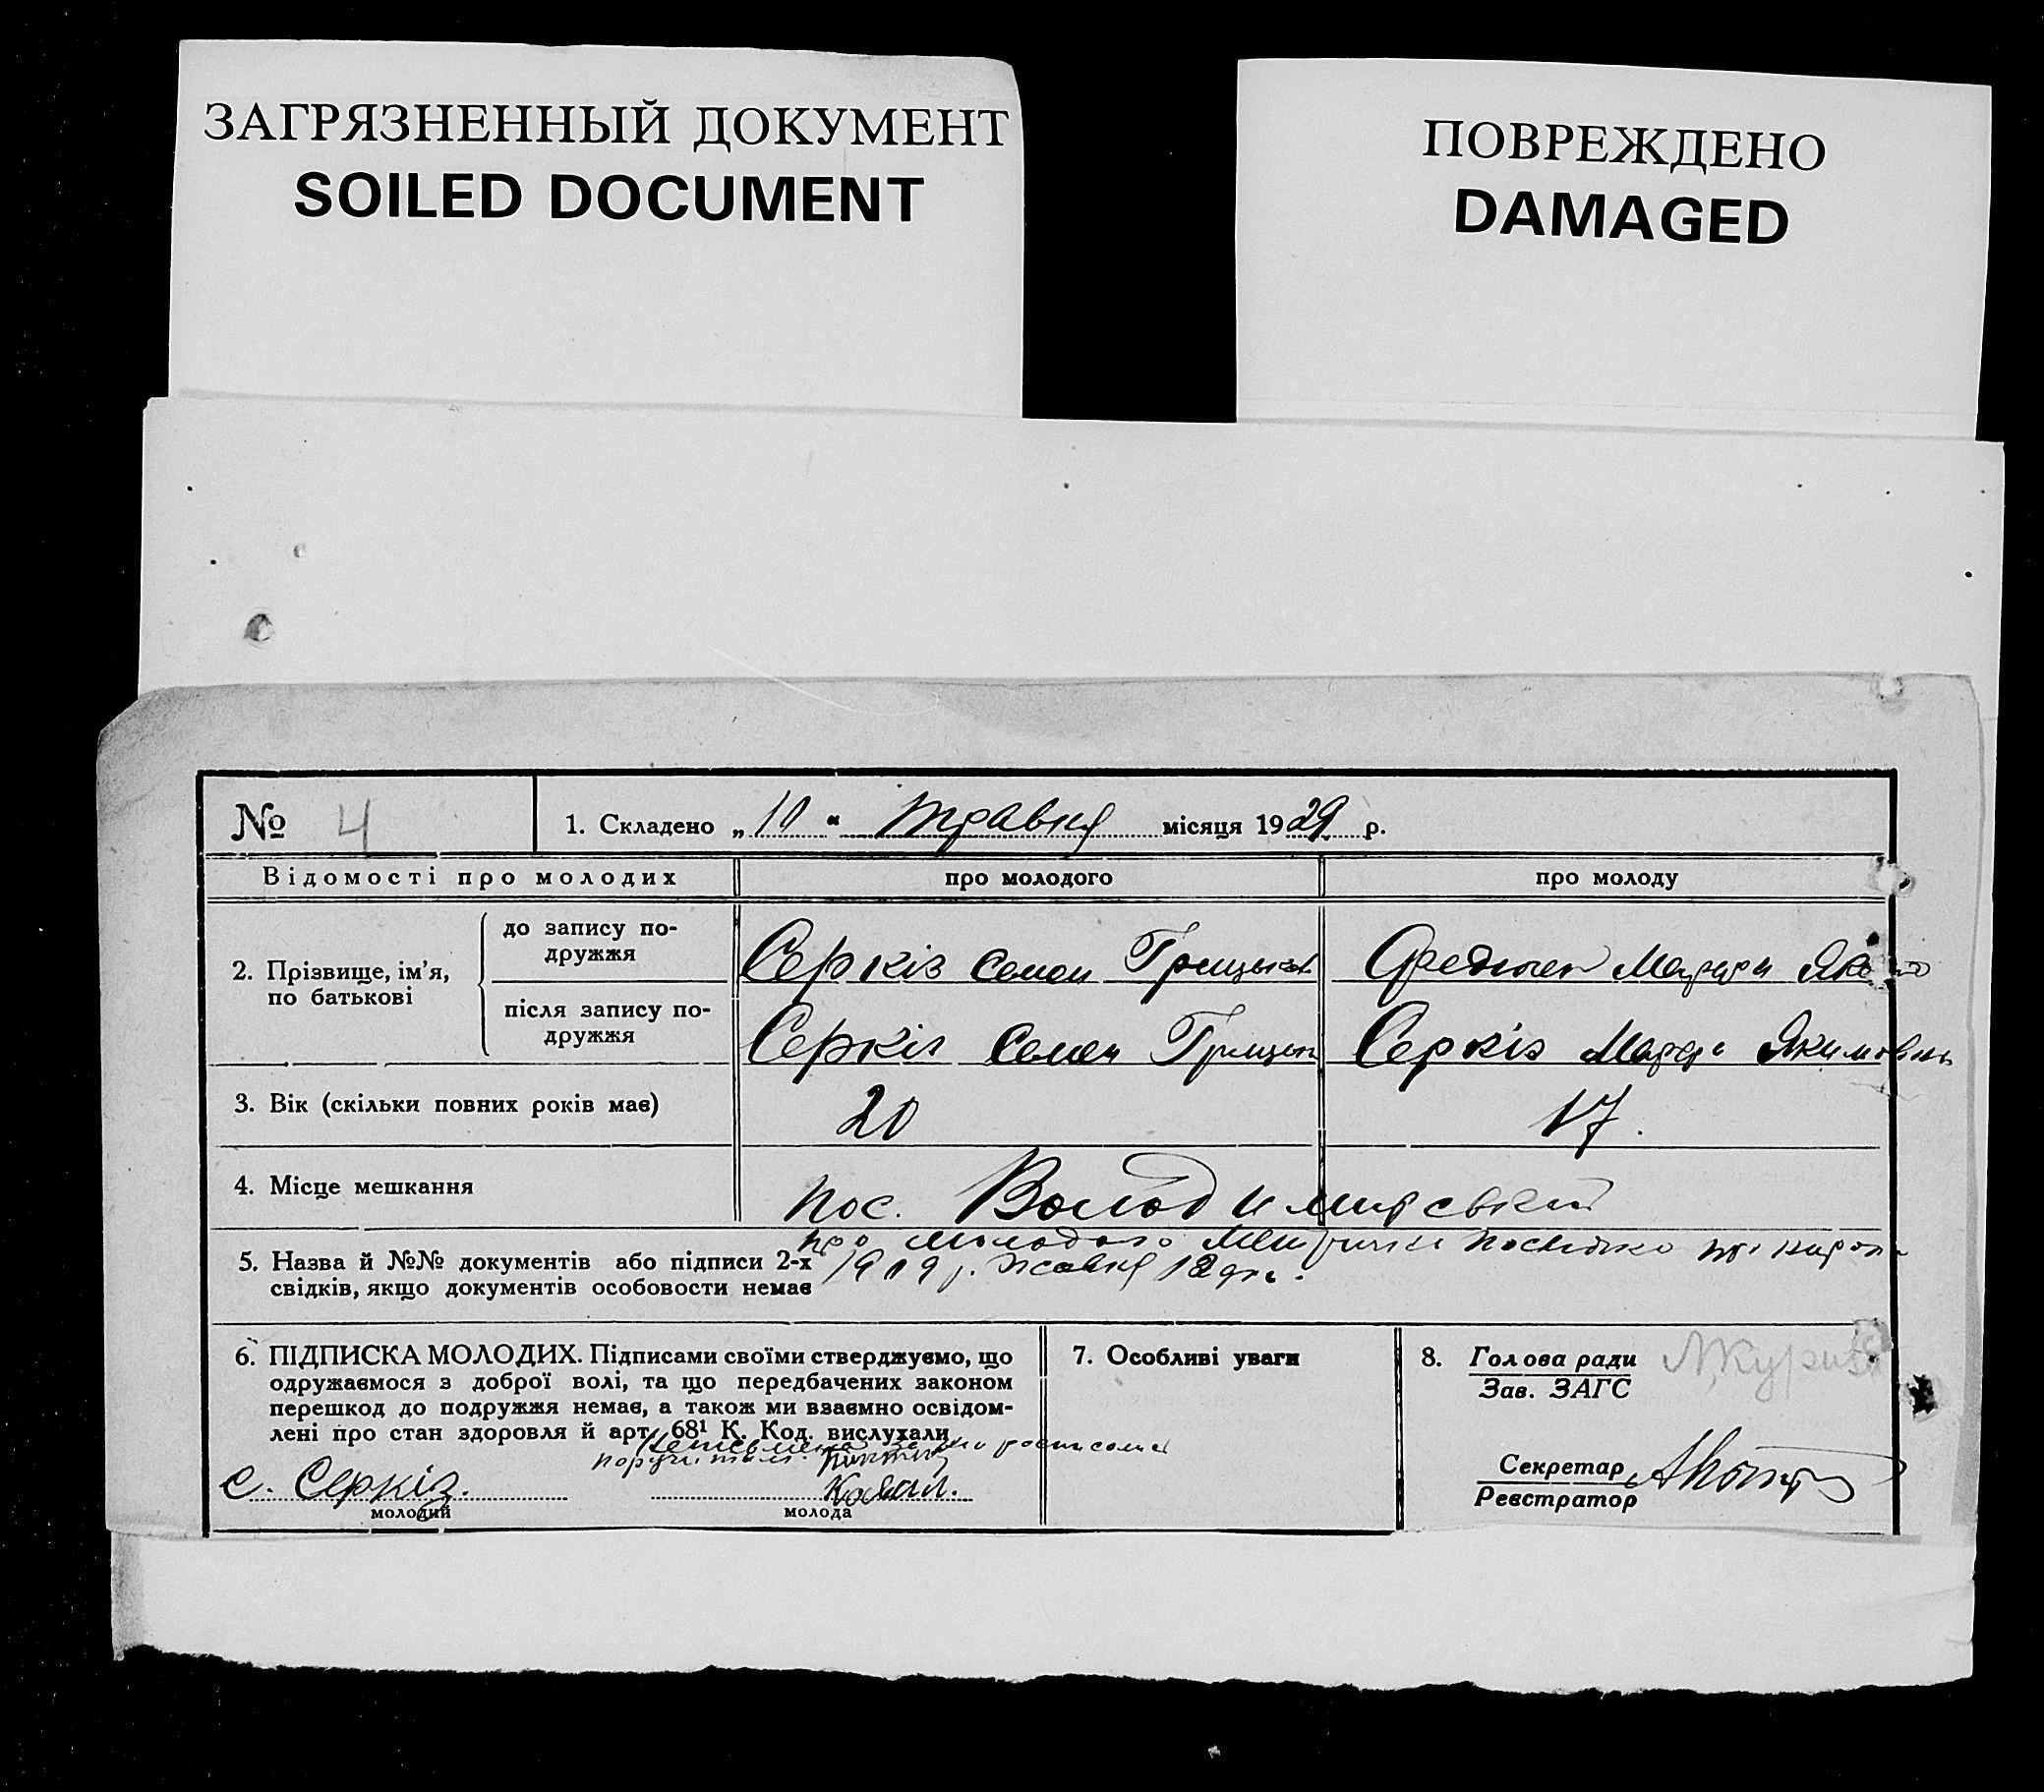 ЗАГРЯЗНЕННЫЙ ДОКУМЕНТ
SOILED DOCUMENT
ПОВРЕЖДЕНО
DAMAGED
№ 4
1. Складено „10“ травня місяця 1929 р.
Відомості про молодих
про молодого
про молоду
2. Прізвище, ім’я, по батькові
до запису подружжя
Серкіз Семен
Марфи
після запису подружжя
Серкіз Семен
Серкіз Марфи Якимовни
3. Вік (скільки повних років має)
20
17.
4. Місце мешкання
пос. Володимирський
5. Назва й №№ документів або підписи 2-х
свідків, якщо документів особовости немає
про молодого
1909 р.
6. ПІДПИСКА МОЛОДИХ. Підписами своїми стверджуємо, що
одружаємося з доброї волі, та що передбачених законом
перешкод до подружжя немає, а також ми взаємно освідом-
лені про стан здоровля й арт. 68¹ К. Код. вислухали
с. Серкіз.
молодий
Коваль.
молода
7. Особливі уваги
8. Голова ради
Зав. ЗАГС
Секретар
Реєстратор